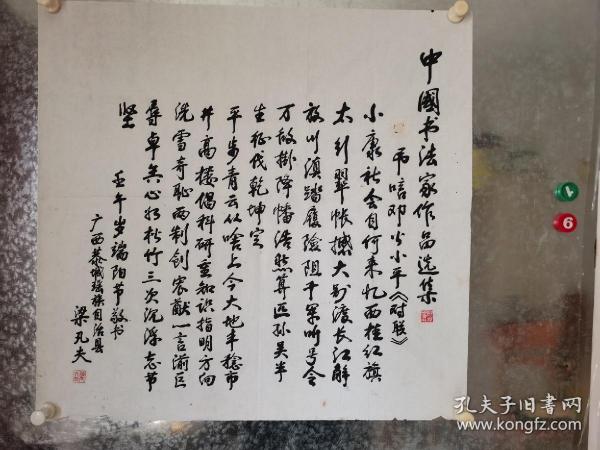 中國书法家作品选集
吊唁邓公小平《对联》
小康社会自何来忆西桂红旗
太行翠帐撼大别渡长江解
放川滇踏履险阻千军听号令
万敌掛降幡浩然算迈孙吴半
生征伐乾坤定
平步青云从啥上今大地丰稔市
井高楼倡科研重知识指明方向
洗雪奇耻两制创宏猷一言湔巨
尋卓矣心松竹三次沉浮志节
坚
壬午岁端阳节敬书
广西恭城瑶族自治县
梁凡夫
孔夫子旧书网
www.kongfz.com